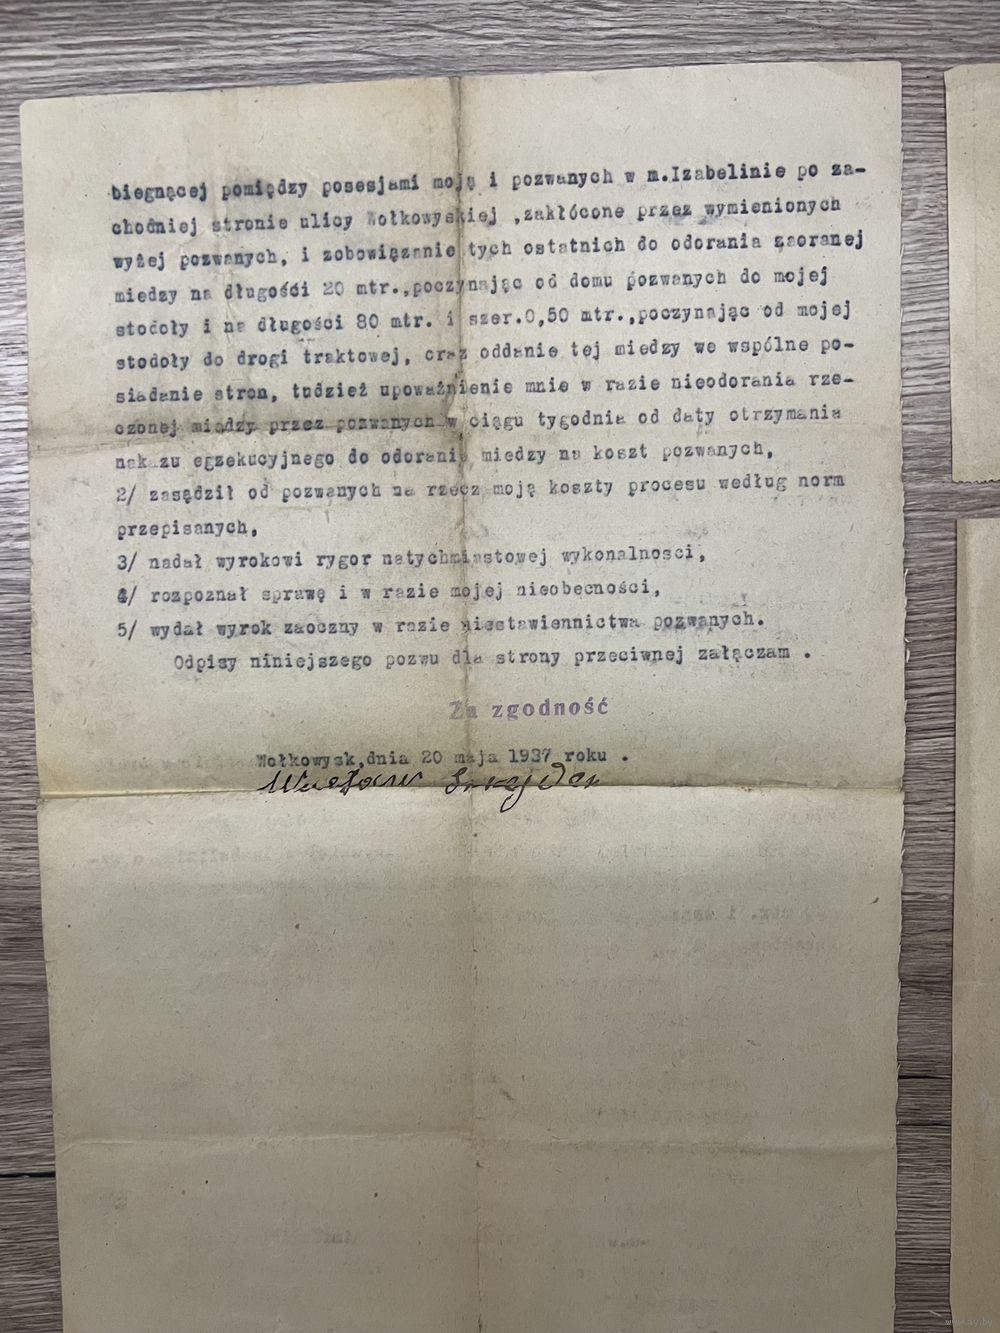 biegnącej pomiędzy posesjami moją i pozwanych w m.Izabelinie po za-
chodniej stronie ulicy Wołkowyskiej ,zakłócone przez wymienionych
wyżej pozwanych, i zobowiązanie tych ostatnich do odorania zaoranej
miedzy na długośći 20 mtr.,poczynając od domu pozwanych do mojej
stodoły i na długości 80 mtr. i szer.0,50 mtr.,poczynając od mojej
stodoły do drogi traktowej, oraz oddanie tej miedzy we wspólne po-
siadanie stron, tudzież upoważnienie mnie w razie nieodorania rze-
czonej miedzy przez pozwanych w ciągu tygodnia od daty otrzymania
nakazu egzekucyjnego do odorania miedzy na koszt pozwanych,
2/ zasądził od pozwanych na rzecz moją koszty procesu według norm
przepisanych,
3/ nadał wyrokowi rygor natychmiastowej wykonalnosci,
4/ rozpoznał sprawę i w razie mojej nieobecności,
5/ wydał wyrok zaoczny w razie niestawiennictwa pozwanych.
Odpisy niniejszego pozwu dla strony przeciwnej załączam .
Za zgodność
Wołkowysk,dnia 20 maja 1937 roku .
www.ay.by